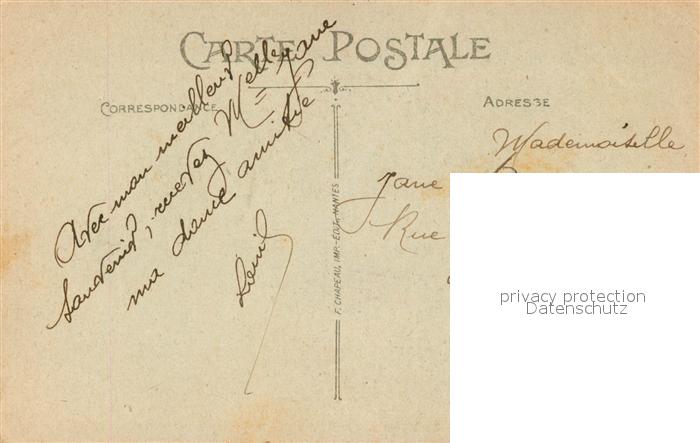 CARTE POSTALE
CORRESPONDANCE
ADRESSE
Avec mon meilleur
souvenir, recevez Melle Jane
ma bonne amitié
Louis
F. CHAPEAU, IMP.-ÉDIT., NANTES
Mademoiselle
Jane
Rue
privacy protection
Datenschutz